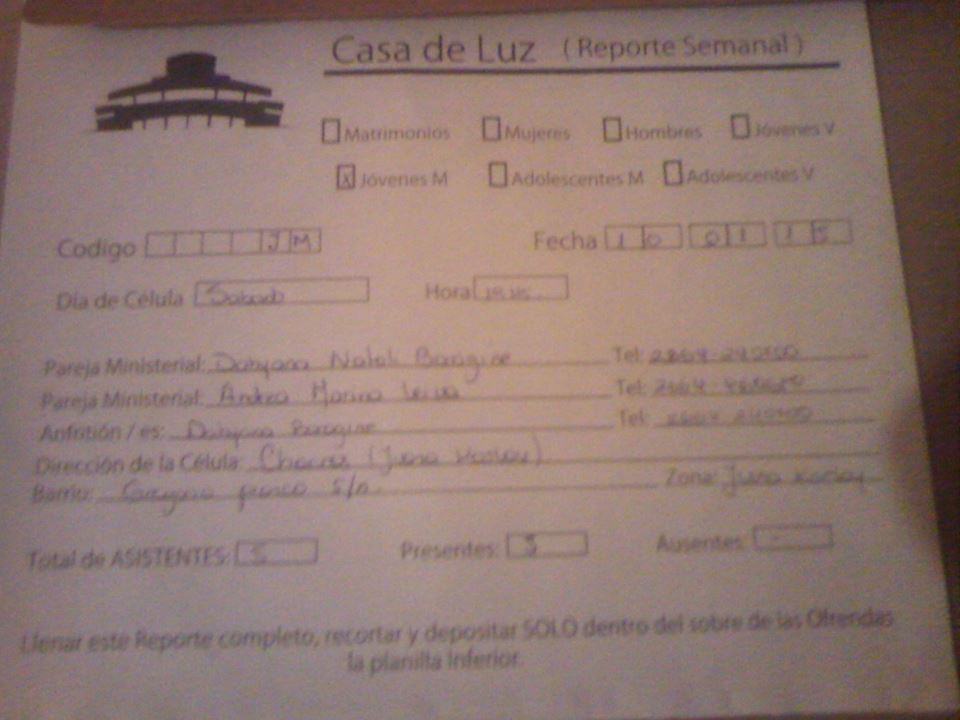 Casa de Luz ( Reporte Semanal )
Matrimonios Mujeres Hombres Jóvenes V
X Jóvenes M Adolescentes M Adolescentes V
Codigo JM Fecha 10 01 15
Día de Célula Sabado Hora
Pareja Ministerial: Dabyana Natali Tel:
Pareja Ministerial: Andrea Marina Leiva Tel:
Anfitrión / es: Dabyana Tel:
Dirección de la Célula: (Juana Koslay)
Barrio: s/n. Zona: Juana Koslay
Total de ASISTENTES: 5 Presentes: 5 Ausentes: -
Llenar este Reporte completo, recortar y depositar SOLO dentro del sobre de las Ofrendas
la planilla Inferior.